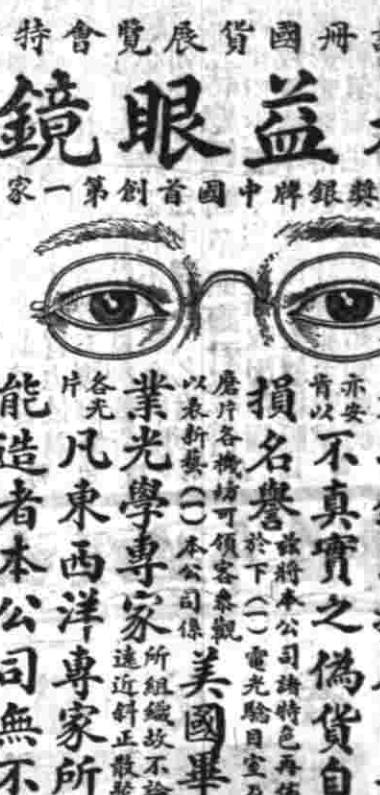 冊國貨展覽會特
益眼鏡
獎銀牌中國首創第一家
亦安
肯以
不真實之偽貨自
損名譽
茲將本公司諸特色再佈
於下(一)電光驗目室
磨片各機坊可領客參觀
以表新藝(一)本公司係
美國畢
業光學專家
所組織故不論
遠近斜正散
各光
片
凡東西洋專家所
能造者本公司無不